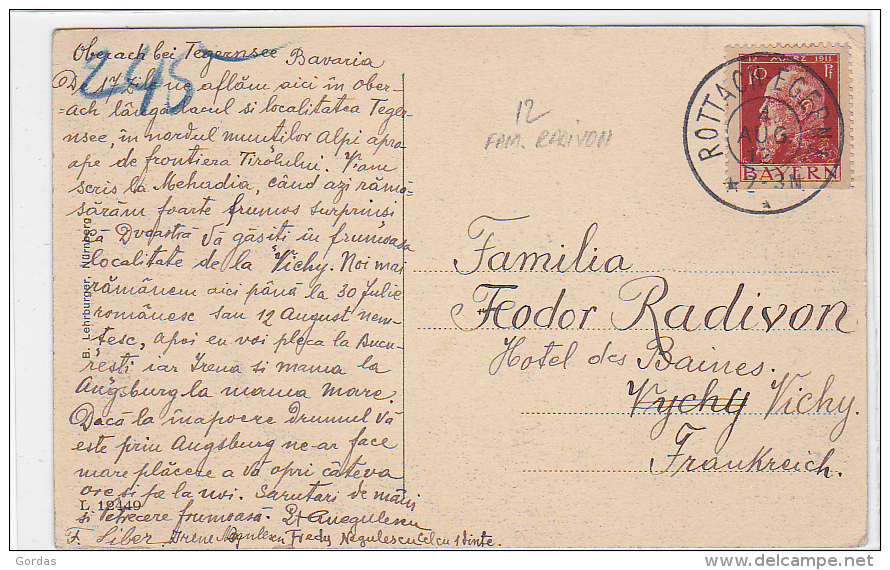 Oberach bei Tegernsee Bavaria
De 17 zile ne aflăm aici în Ober-
=ach lângă lacul si localitatea Teger-
nsee, în nordul muntilor Alpi apro
ape de frontiera Tirolului. V'am
scris la Mehadia, când azi rămă-
sărăm foarte frumos surprinsi
că Dvoastră Vă găsiti în frumoasa
localitate de la Vichy. Noi mai
rămânem aici până la 30 Iulie
românesc sau 12 August nem-
tesc, apoi eu voi pleca la Bucu-
resti iar Irena si mama la
Augsburg la mama mare.
Dacă la înapoere drumul Vă
este prin Augsburg ne-ar face
mare plăcere a Vă opri câteva
ore si pe la noi. Sarutari de mâni
si petrecere frumoasă.
F. Liber Irene Negulescu Fredy Negulescu cel cu 1 dinte.
245
B. Lehrburger, Nürnberg
L 12449
12
FAM. RADIVON
12 MÄRZ 1911
10 Pf
BAYERN
ROTTACH-EGERN
4
AUG
2-3N
Familia
Feodor Radivon
Hotel des Baines.
Vychy Vichy.
Frankreich.
Gordas
delcampe.net